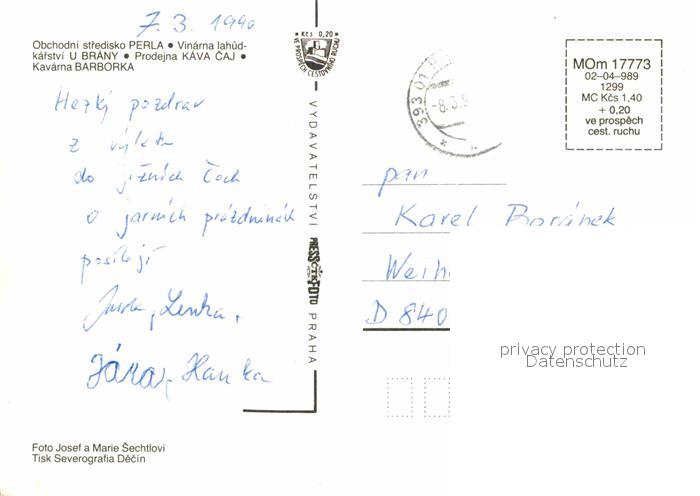 7.3. 1990
Obchodní středisko PERLA • Vinárna lahůd-
kářství U BRÁNY • Prodejna KÁVA ČAJ •
Kavárna BARBORKA
Hezký pozdrav
z výletu
do jižních Čech
o jarních prázdninách
posílají
Lenka,
Jára, Hanka
Foto Josef a Marie Šechtlovi
Tisk Severografia Děčín
• Kčs 0,20 •
VE PROSPĚCH CESTOVNÍHO RUCHU
VYDAVATELSTVÍ
PRESSFOTO
ČTK
PRAHA
393 01
-8.3.
MOm 17773
02-04-989
1299
MC Kčs 1,40
+ 0,20
ve prospěch
cest. ruchu
pan
Karel Boránek
Weih
D 840
privacy protection
Datenschutz